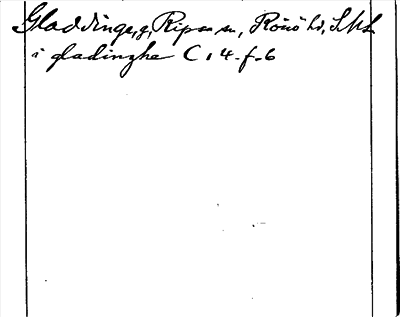 Gladdinge, g, Ripsa sn, Rönö hd, SML
i gladinghe C 14 f. 6